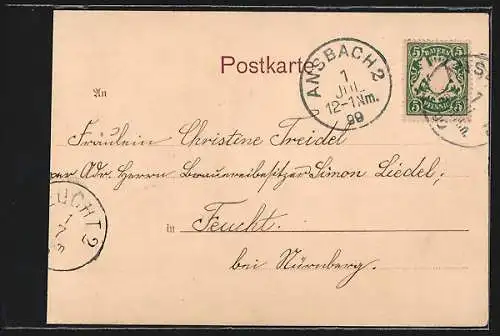 Postkarte
ANSBACH 2
1
JUL.
12-1 Nm.
99
5 BAYERN 5
5 PFENNIG 5
An
Fräulein Christine Treidel
per Adr. Herrn Brauereibesitzer Simon Liedel,
FEUCHT 2
1
7
in Feucht
bei Nürnberg.